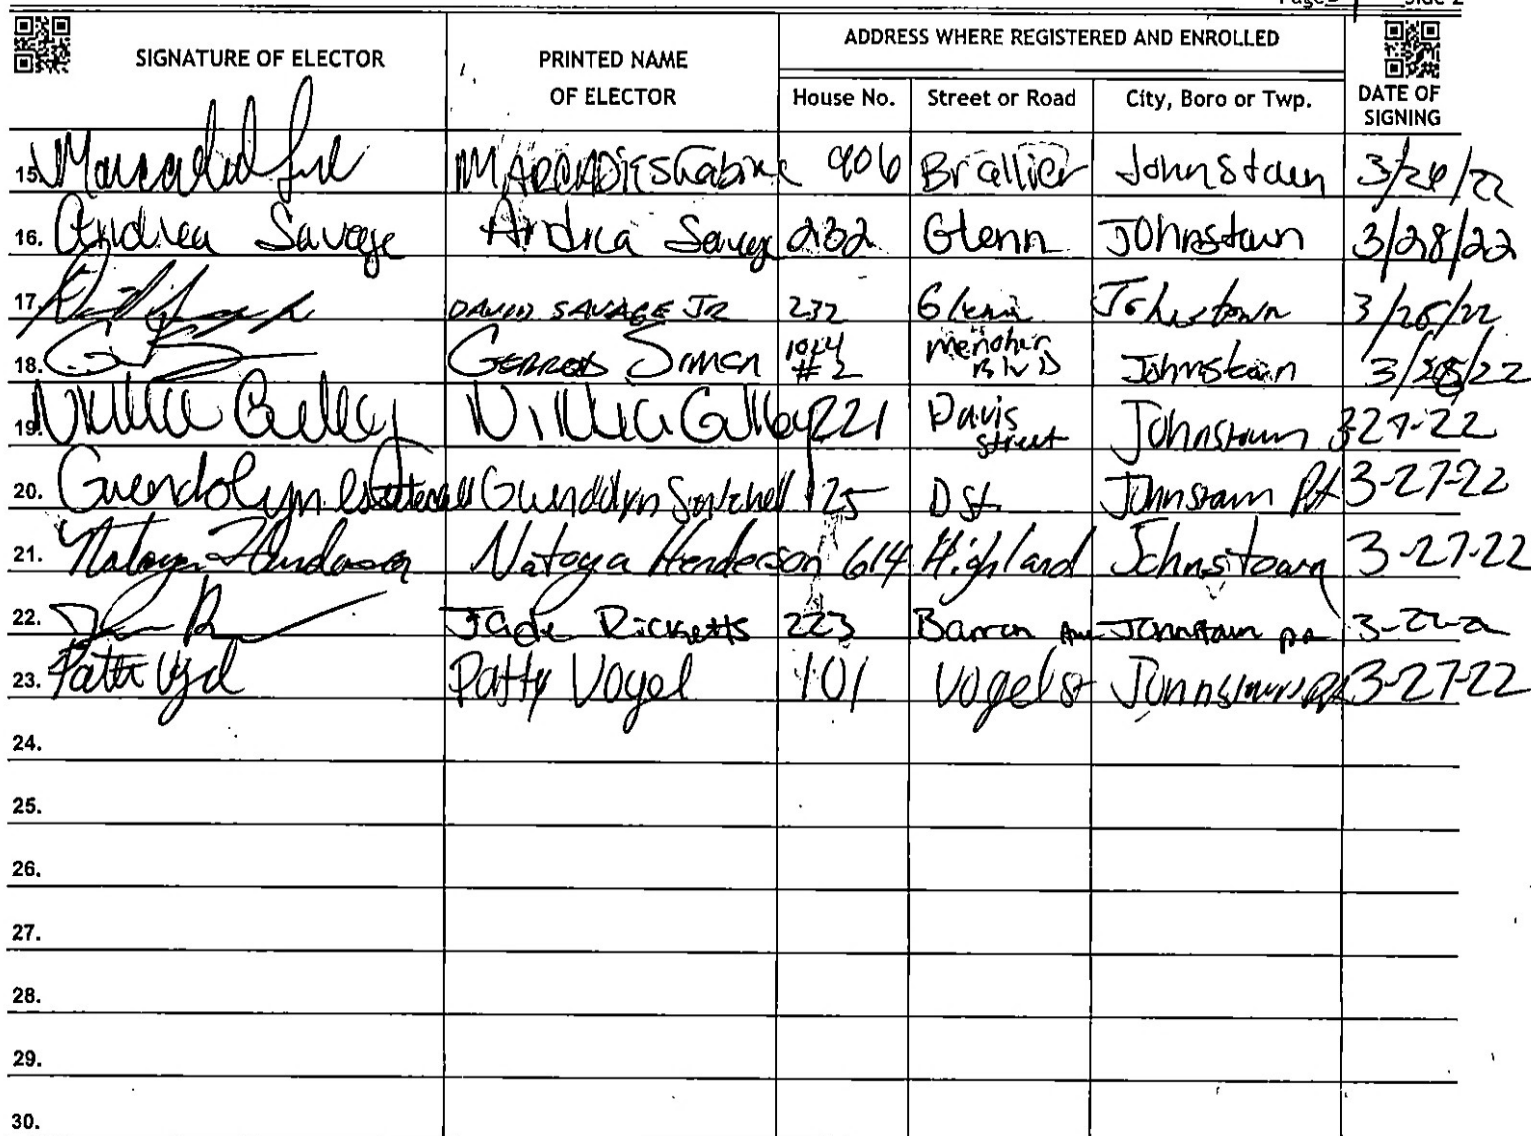 Side 2
SIGNATURE OF ELECTOR PRINTED NAME OF ELECTOR ADDRESS WHERE REGISTERED AND ENROLLED DATE OF SIGNING
House No. Street or Road City, Boro or Twp.
15. 906 Brallier Johnstown 3/26/22
16. Andrea Savage Andrea Savage 232 Glenn Johnstown 3/28/22
17. DAVID SAVAGE JR 232 Glenn Johnstown 3/28/22
18. GERROD 1024 #2 Menoher Blvd Johnstown 3/28/22
19. 221 Davis Street Johnstown 3-27-22
20. Gwendolyn Gwendolyn 125 D St. Johnstown PA 3-27-22
21. Natoya Henderson Natoya Henderson 614 Highland Johnstown 3-27-22
22. Jade Ricketts 223 Barron Ave Johnstown PA
23. Patty Vogel 101 Vogel St Johnstown PA 3-27-22
24.
25.
26.
27.
28.
29.
30.